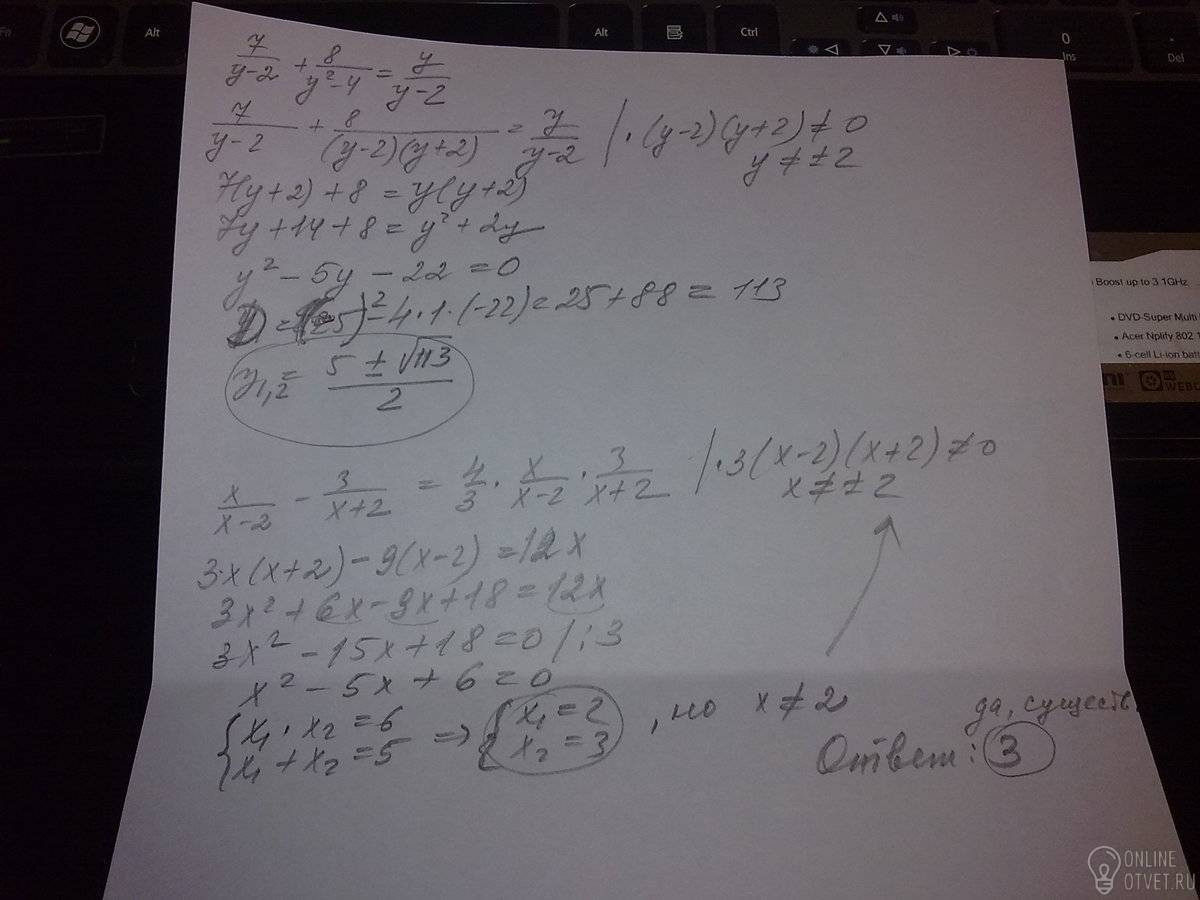 Fn Alt Alt Ctrl 0 Ins . Del
7/(y-2) + 8/(y²-4) = y/(y-2)
7/(y-2) + 8/((y-2)(y+2)) = y/(y-2) | · (y-2)(y+2) ≠ 0
y ≠ ±2
7(y+2) + 8 = y(y+2)
7y + 14 + 8 = y² + 2y
y² - 5y - 22 = 0
D = (-5)² - 4·1·(-22) = 25 + 88 = 113
y₁,₂ = (5 ± √113)/2
x/(x-2) - 3/(x+2) = 4/3 · x/(x-2) · 3/(x+2) | · 3(x-2)(x+2) ≠ 0
x ≠ ±2
3·x(x+2) - 9(x-2) = 12x
3x² + 6x - 9x + 18 = 12x
3x² - 15x + 18 = 0 | : 3
x² - 5x + 6 = 0
{ x₁ · x₂ = 6
{ x₁ + x₂ = 5
=> { x₁ = 2
{ x₂ = 3
, но x ≠ 2
да, существ.
Ответ: 3
Boost up to 3.1GHz
• DVD-Super Multi
• Acer Nplify 802.1
• 6-cell Li-ion batt
ONLINE
OTVET.RU